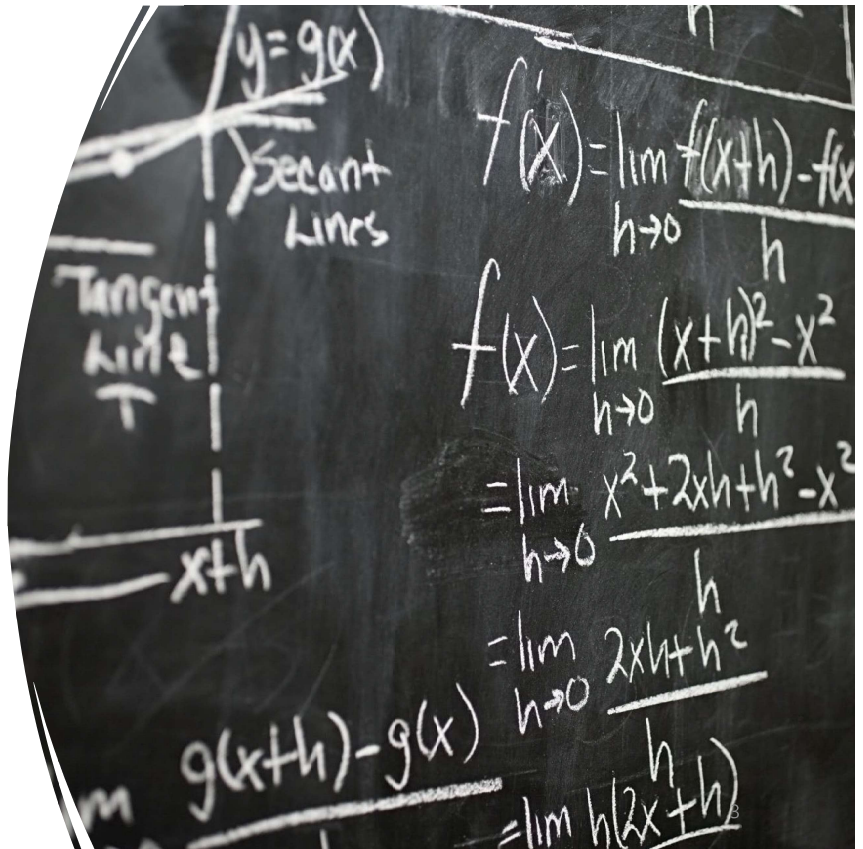 y = g(x)
Secant
Lines
Tangent
Line
T
x+h
g(x+h)-g(x)
h
f'(x) = lim f(x+h)-f(x
h→0 h
f(x) = lim (x+h)²-x²
h→0 h
= lim x²+2xh+h²-x²
h→0 h
= lim 2xh+h²
h→0 h
= lim h(2x+h)
3